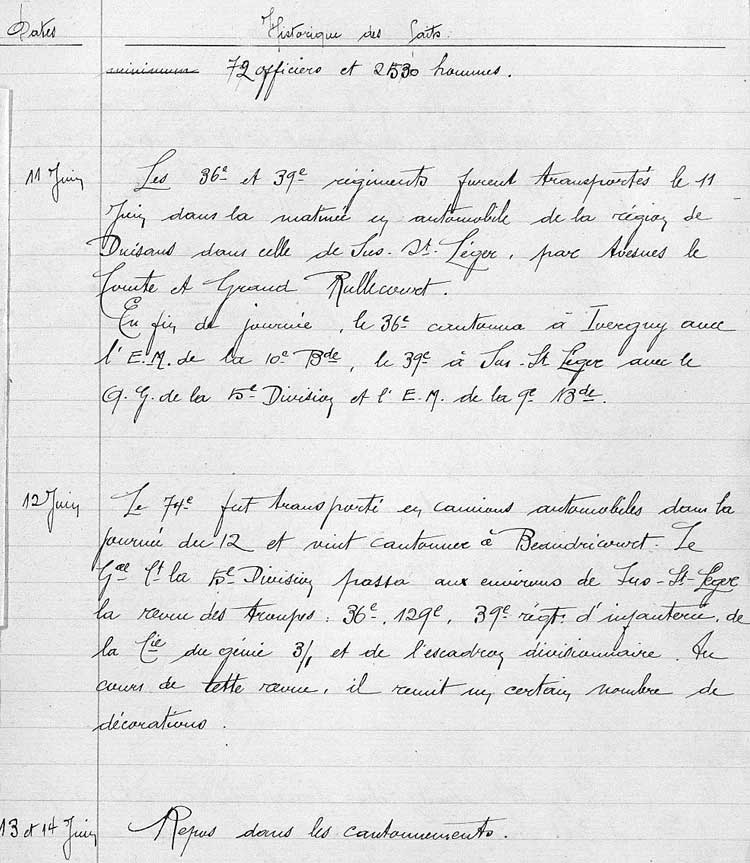 Dates Historique des faits
minimum 72 officiers et 2530 hommes.
11 Juin Les 36e et 39e régiments furent transportés le 11
Juin dans la matinée en automobile de la région de
Duisans dans celle de Sus-St-Léger, par Avesnes le
Comte et Grand Rullecourt.
En fin de journée, le 36e cantonna à Ivergny avec
l'E.M. de la 10e Bde, le 39e à Sus-St Léger avec le
Q.G. de la 5e Division et l'E.M. de la 9e Bde.
12 Juin Le 74e fut transporté en camions automobiles dans la
journée du 12 et vint cantonner à Beaudricourt. Le
Gal Ct la 5e Division passa aux environs de Sus-St-Léger
la revue des troupes : 36e, 129e, 39e régt. d'infanterie, de
la Cie du génie 3/1 et de l'escadron divisionnaire. Au
cours de cette revue, il remit un certain nombre de
décorations.
13 et 14 Juin Repos dans les cantonnements.